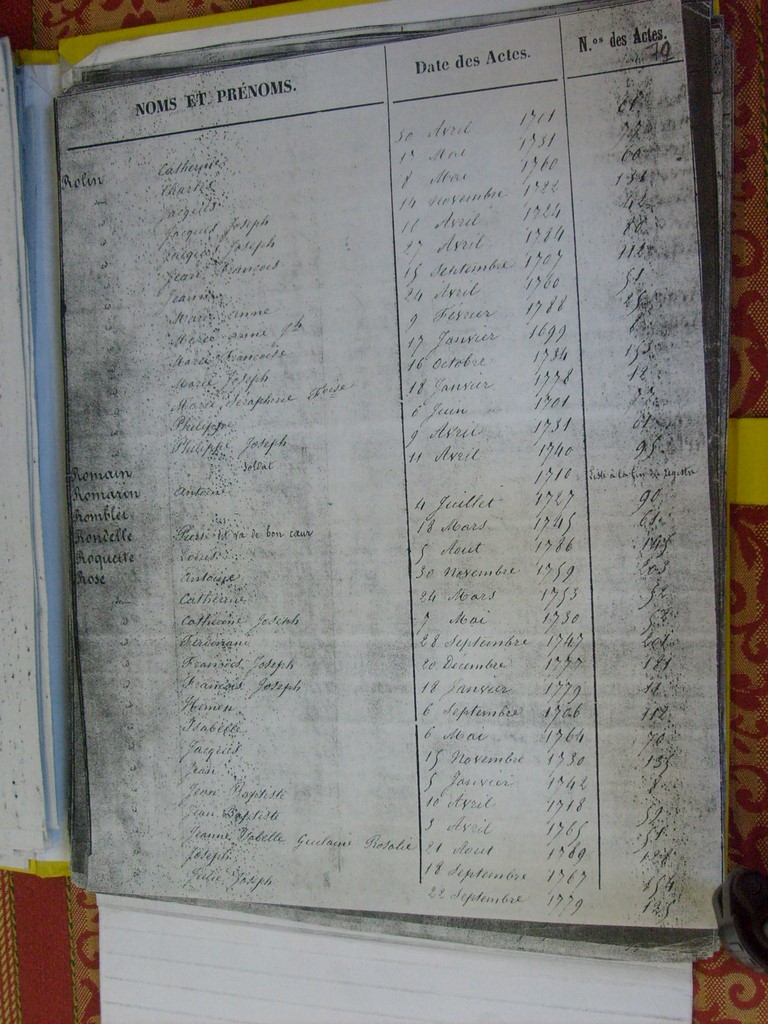 NOMS ET PRÉNOMS. Date des Actes. N.os des Actes.
79
Rolin Catherine 30 Avril 1701 61
Charles 17 Mai 1731 77
Jacques 8 Mai 1760 60
Jacques Joseph 14 Novembre 1722 131
Jacques Joseph 11 Avril 1724 42
Jean Francois 27 Avril 1784 80
Jeanne 15 Septembre 1707 112
Marie Anne 24 Avril 1760 51
Marie anne Jh 9 Fevrier 1788 25
Marie Francoise 17 Janvier 1699 6
Marie Joseph 16 Octobre 1734 153
Marie Seraphine Foise 18 Janvier 1778 12
Philippe 6 Juin 1701
Philippe Joseph 9 Avril 1731 61
Romain Soldat 11 Avril 1740 95
Romarin Antoine 1710 Liste à la fin du registre
Romblet 4 Juillet 1727 90
Rondelle Pierre dit va de bon cœur 18 Mars 1745 61
Roquette Louis 5 Aout 1786 145
Rose Antoine 30 Novembre 1759 103
Catherine 24 Mars 1753 52
Catherine Joseph 7 Mai 1730 53
Ferdinand 28 Septembre 1747 201
Francois Joseph 20 Decembre 1777 181
Francois Joseph 18 Janvier 1779 11
Hemen 6 Septembre 1766 112
Isabelle 6 Mai 1764 70
Jacques 15 Novembre 1730 135
Jean 5 Janvier 1742 8
Jean Baptiste 10 Avril 1718 59
Jean Baptiste 3 Avril 1765 51
Jeanne Isabelle Guilaine Rosalie 21 Aout 1769 121
Joseph 18 Septembre 1767 154
Julie Joseph 22 Septembre 1779 125